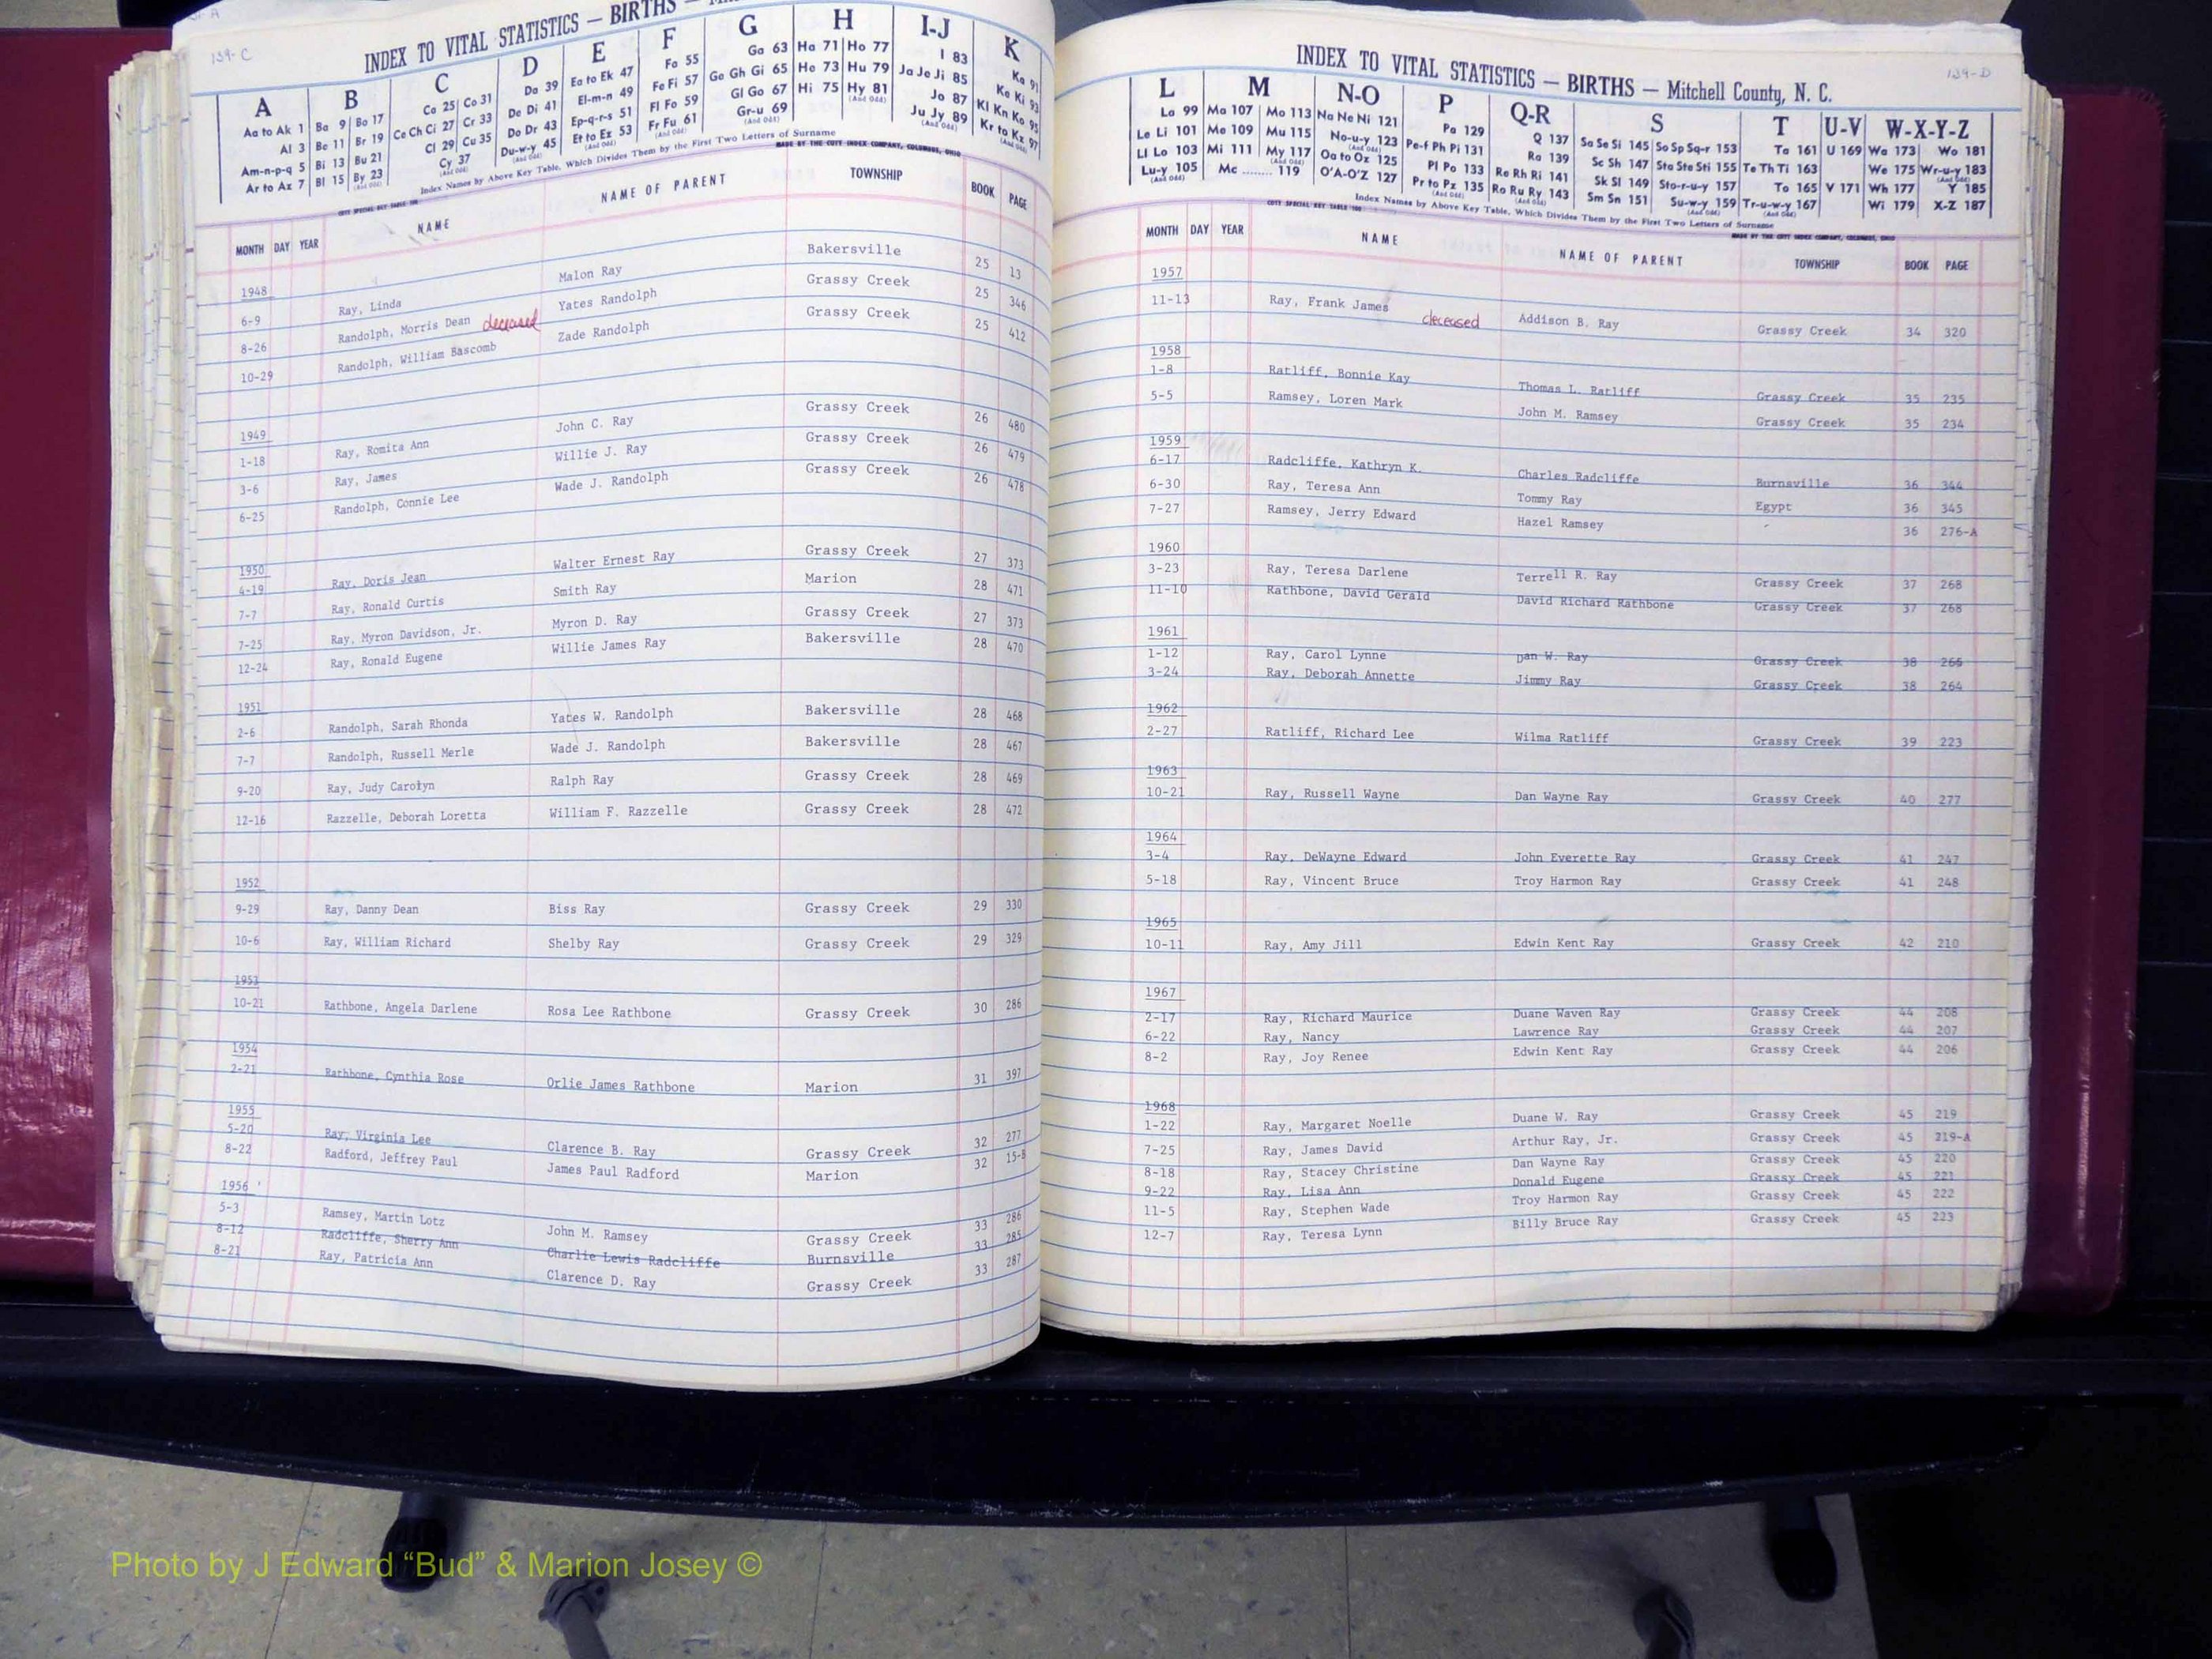 139-C
INDEX TO VITAL STATISTICS — BIRTHS —
A B C D E F G H I-J K
Aa to Ak 1 Ba 9 Bo 17 Ca 25 Co 31 Da 39 Ea to Ek 47 Fa 55 Ga 63 Ha 71 Ho 77 I 83 Ka 91
Al 3 Be 11 Br 19 Ce Ch Ci 27 Cr 33 De Di 41 El-m-n 49 Fe Fi 57 Ge Gh Gi 65 He 73 Hu 79 Ja Je Ji 85 Ke Ki 93
Am-n-p-q 5 Bi 13 Bu 21 Cl 29 Cu 35 Do Dr 43 Ep-q-r-s 51 Fl Fo 59 Gl Go 67 Hi 75 Hy 81 Jo 87 Kl Kn Ko 95
Ar to Az 7 Bl 15 By 23 Cy 37 Du-w-y 45 Et to Ez 53 Fr Fu 61 Gr-u 69 Ju Jy 89 Kr to Kz 97
Index Names by Above Key Table, Which Divides Them by the First Two Letters of Surname
MADE BY THE COTT INDEX COMPANY, COLUMBUS, OHIO
MONTH DAY YEAR NAME NAME OF PARENT TOWNSHIP BOOK PAGE
1948
6-9 Ray, Linda Malon Ray Bakersville 25 13
8-26 Randolph, Morris Dean deceased Yates Randolph Grassy Creek 25 346
10-29 Randolph, William Bascomb Zade Randolph Grassy Creek 25 412
1949
1-18 Ray, Romita Ann John C. Ray Grassy Creek 26 480
3-6 Ray, James Willie J. Ray Grassy Creek 26 479
6-25 Randolph, Connie Lee Wade J. Randolph Grassy Creek 26 478
1950
4-19 Ray, Doris Jean Walter Ernest Ray Grassy Creek 27 373
7-7 Ray, Ronald Curtis Smith Ray Marion 28 471
7-25 Ray, Myron Davidson, Jr. Myron D. Ray Grassy Creek 27 373
12-24 Ray, Ronald Eugene Willie James Ray Bakersville 28 470
1951
2-6 Randolph, Sarah Rhonda Yates W. Randolph Bakersville 28 468
7-7 Randolph, Russell Merle Wade J. Randolph Bakersville 28 467
9-20 Ray, Judy Carolyn Ralph Ray Grassy Creek 28 469
12-16 Razzelle, Deborah Loretta William F. Razzelle Grassy Creek 28 472
1952
9-29 Ray, Danny Dean Biss Ray Grassy Creek 29 330
10-6 Ray, William Richard Shelby Ray Grassy Creek 29 329
1953
10-21 Rathbone, Angela Darlene Rosa Lee Rathbone Grassy Creek 30 286
1954
2-21 Rathbone, Cynthia Rose Orlie James Rathbone Marion 31 397
1955
5-20 Ray, Virginia Lee Clarence B. Ray Grassy Creek 32 277
8-22 Radford, Jeffrey Paul James Paul Radford Marion 32 15-B
1956
5-3 Ramsey, Martin Lotz John M. Ramsey Grassy Creek 33 286
8-12 Radcliffe, Sherry Ann Charlie Lewis Radcliffe Burnsville 33 285
8-21 Ray, Patricia Ann Clarence D. Ray Grassy Creek 33 287
139-D
INDEX TO VITAL STATISTICS — BIRTHS — Mitchell County, N. C.
L M N-O P Q-R S T U-V W-X-Y-Z
La 99 Ma 107 Mo 113 Na Ne Ni 121 Pa 129 Q 137 Sa Se Si 145 So Sp Sq-r 153 Ta 161 U 169 Wa 173 Wo 181
Le Li 101 Me 109 Mu 115 No-u-y 123 Pe-f Ph Pi 131 Ra 139 Sc Sh 147 Sta Ste Sti 155 Te Th Ti 163 We 175 Wr-u-y 183
Ll Lo 103 Mi 111 My 117 Oa to Oz 125 Pl Po 133 Re Rh Ri 141 Sk Sl 149 Sto-r-u-y 157 To 165 V 171 Wh 177 Y 185
Lu-y 105 Mc 119 O'A-O'Z 127 Pr to Pz 135 Ro Ru Ry 143 Sm Sn 151 Su-w-y 159 Tr-u-w-y 167 Wi 179 X-Z 187
Index Names by Above Key Table, Which Divides Them by the First Two Letters of Surname
MONTH DAY YEAR NAME NAME OF PARENT TOWNSHIP BOOK PAGE
1957
11-13 Ray, Frank James deceased Addison B. Ray Grassy Creek 34 320
1958
1-8 Ratliff, Bonnie Kay Thomas L. Ratliff Grassy Creek 35 235
5-5 Ramsey, Loren Mark John M. Ramsey Grassy Creek 35 234
1959
6-17 Radcliffe, Kathryn K. Charles Radcliffe Burnsville 36 344
6-30 Ray, Teresa Ann Tommy Ray Egypt 36 345
7-27 Ramsey, Jerry Edward Hazel Ramsey 36 276-A
1960
3-23 Ray, Teresa Darlene Terrell R. Ray Grassy Creek 37 268
11-10 Rathbone, David Gerald David Richard Rathbone Grassy Creek 37 268
1961
1-12 Ray, Carol Lynne Dan W. Ray Grassy Creek 38 265
3-24 Ray, Deborah Annette Jimmy Ray Grassy Creek 38 264
1962
2-27 Ratliff, Richard Lee Wilma Ratliff Grassy Creek 39 223
1963
10-21 Ray, Russell Wayne Dan Wayne Ray Grassy Creek 40 277
1964
3-4 Ray, DeWayne Edward John Everette Ray Grassy Creek 41 247
5-18 Ray, Vincent Bruce Troy Harmon Ray Grassy Creek 41 248
1965
10-11 Ray, Amy Jill Edwin Kent Ray Grassy Creek 42 210
1967
2-17 Ray, Richard Maurice Duane Waven Ray Grassy Creek 44 208
6-22 Ray, Nancy Lawrence Ray Grassy Creek 44 207
8-2 Ray, Joy Renee Edwin Kent Ray Grassy Creek 44 206
1968
1-22 Ray, Margaret Noelle Duane W. Ray Grassy Creek 45 219
7-25 Ray, James David Arthur Ray, Jr. Grassy Creek 45 219-A
8-18 Ray, Stacey Christine Dan Wayne Ray Grassy Creek 45 220
9-22 Ray, Lisa Ann Donald Eugene Grassy Creek 45 221
11-5 Ray, Stephen Wade Troy Harmon Ray Grassy Creek 45 222
12-7 Ray, Teresa Lynn Billy Bruce Ray Grassy Creek 45 223
Photo by J Edward “Bud” & Marion Josey ©